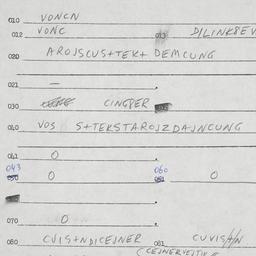 010 VONCN
012 VONC 013 DILINKBEV
020 AROJSCUS+TEK+ DEMCUNG
021 —
030 CINGPER
040 VOS S+TEKSTAROJZDAJNCUNG
041 O
043 O 060 O
070 O
080 CVIS+NDICEJNER 081 CUVIS+/N
(CEJNERVEJTIV